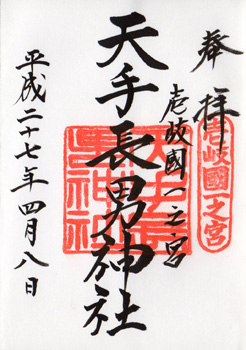 奉拝
壱岐國一之宮
壱岐國一之宮
天手長男神社
平成二十七年四月八日